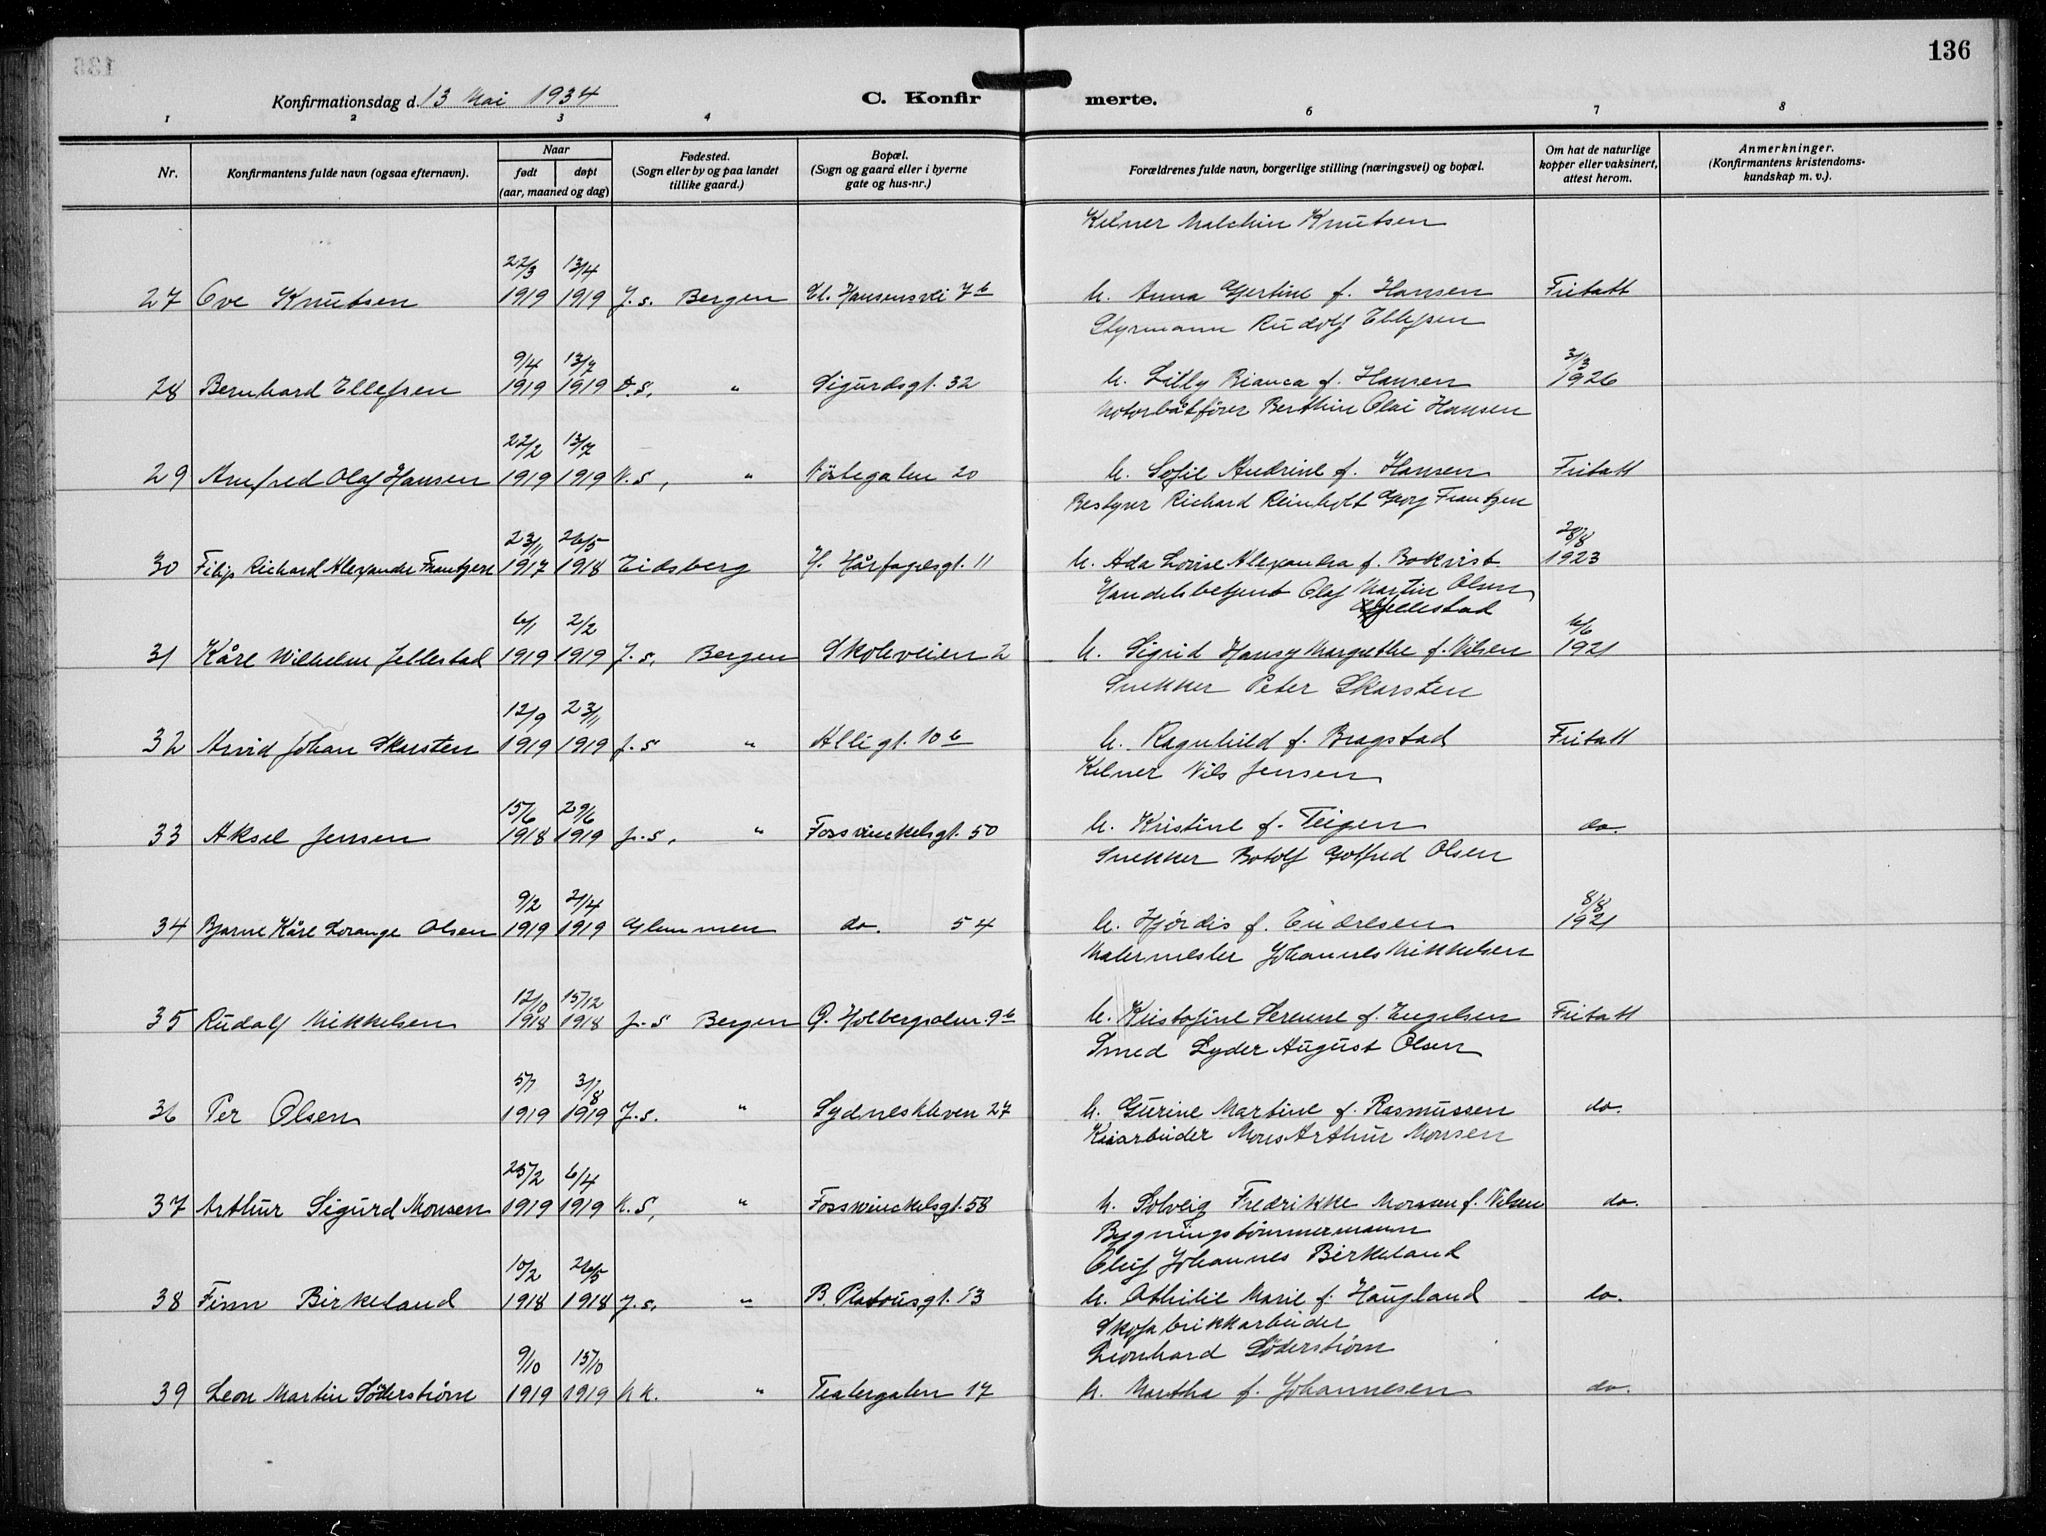 136
Konfirmationsdag d. 13 Mai 1934
C. Konfirmerte.
1 2 3 4 6 7 8
Nr. Konfirmantens fulde navn (ogsaa efternavn). Naar født døpt (aar, maaned og dag) Fødested. (Sogn eller by og paa landet tillike gaard.) Bopæl. (Sogn og gaard eller i byerne gate og hus-nr.) Forældrenes fulde navn, borgerlige stilling (næringsvei) og bopæl. Om hat de naturlige kopper eller vaksinert, attest herom. Anmerkninger. (Konfirmantens kristendoms-kundskap m. v.).
Kelner Malchin Knutsen
22/3 13/4
27 Ove Knutsen 1919 1919 J.s. Bergen Cl. Hansensvei 7b h. Anna Gjertine f. Hansen Fritatt
Styrmann Rudolf Ellefsen
9/4 13/7 3/3
28 Bernhard Ellefsen 1919 1919 D.s. " Sigurdsgt. 32 h. Lilly Bianca f. Hansen 1926
Motorbåtfører Berthin Olai Hansen
22/2 13/7
29 Arnfred Olaf Hansen 1919 1919 N.s, " Nöstegaten 20 h. Sofie Andrine f. Hansen Fritatt
Bestyrer Richard Reinholt Georg Frantzen
23/11 26/5 28/8
30 Filip Richard Alexander Frantzen 1917 1918 Eidsberg H. Hårfagresgt. 11 h. Ada Lovise Alexandra f. Bokvist 1923
Handelsbetjent Olaf Martin Olsen
Jellestad
6/1 2/2 6/6
31 Kåre Wilhelm Jellestad 1919 1919 J.s. Bergen Skoleveien 2 h. Sigrid Hansy Margrethe f. Nilsen 1921
Snekker Peter Skarsten
12/9 23/11
32 Arvid Johan Skarsten 1919 1919 J.s " Allégt. 10b h. Ragnhild f. Bragstad Fritatt
Kelner Nils Jensen
15/6 29/6
33 Aksel Jensen 1918 1919 J.s. " Fosswinckelsgt. 50 h. Kristine f. Teigen do.
Snekker Botolf Gotfred Olsen
9/2 21/4 8/8
34 Bjarne Kåre Lorange Olsen 1919 1919 Glemmen do. 54 h. Hjørdis f. Endresen 1921
Malermester Johannes Mikkelsen
12/10 15/12
35 Rudolf Mikkelsen 1918 1918 J.s Bergen Q. Holbergsalm. 9b h. Kristofine Serenne f. Engelsen Fritatt
Smed Lyder August Olsen
5/7 3/8
36 Per Olsen 1919 1919 J.s. " Sydneskleven 27 h. Gurine Martine f. Rasmussen do.
Kaiarbeider Mons Arthur Monsen
25/2 6/4
37 Arthur Sigurd Monsen 1919 1919 N.S, " Fosswinckelsgt. 58 h. Solveig Fredrikke Monsen f. Nilsen do.
Bygningstømmermann
Oluf Johannes Birkeland
10/2 26/5
38 Finn Birkeland 1918 1918 J.s, " B. Platousgt. 13 h. Othilie Marie f. Haugland do.
Skofabrikkarbeider
Leonhard Söderstrøm
9/10 15/10
39 Leon Martin Söderstrøm 1919 1919 N.K. " Teatergaten 17 h. Martha f. Johannesen do.